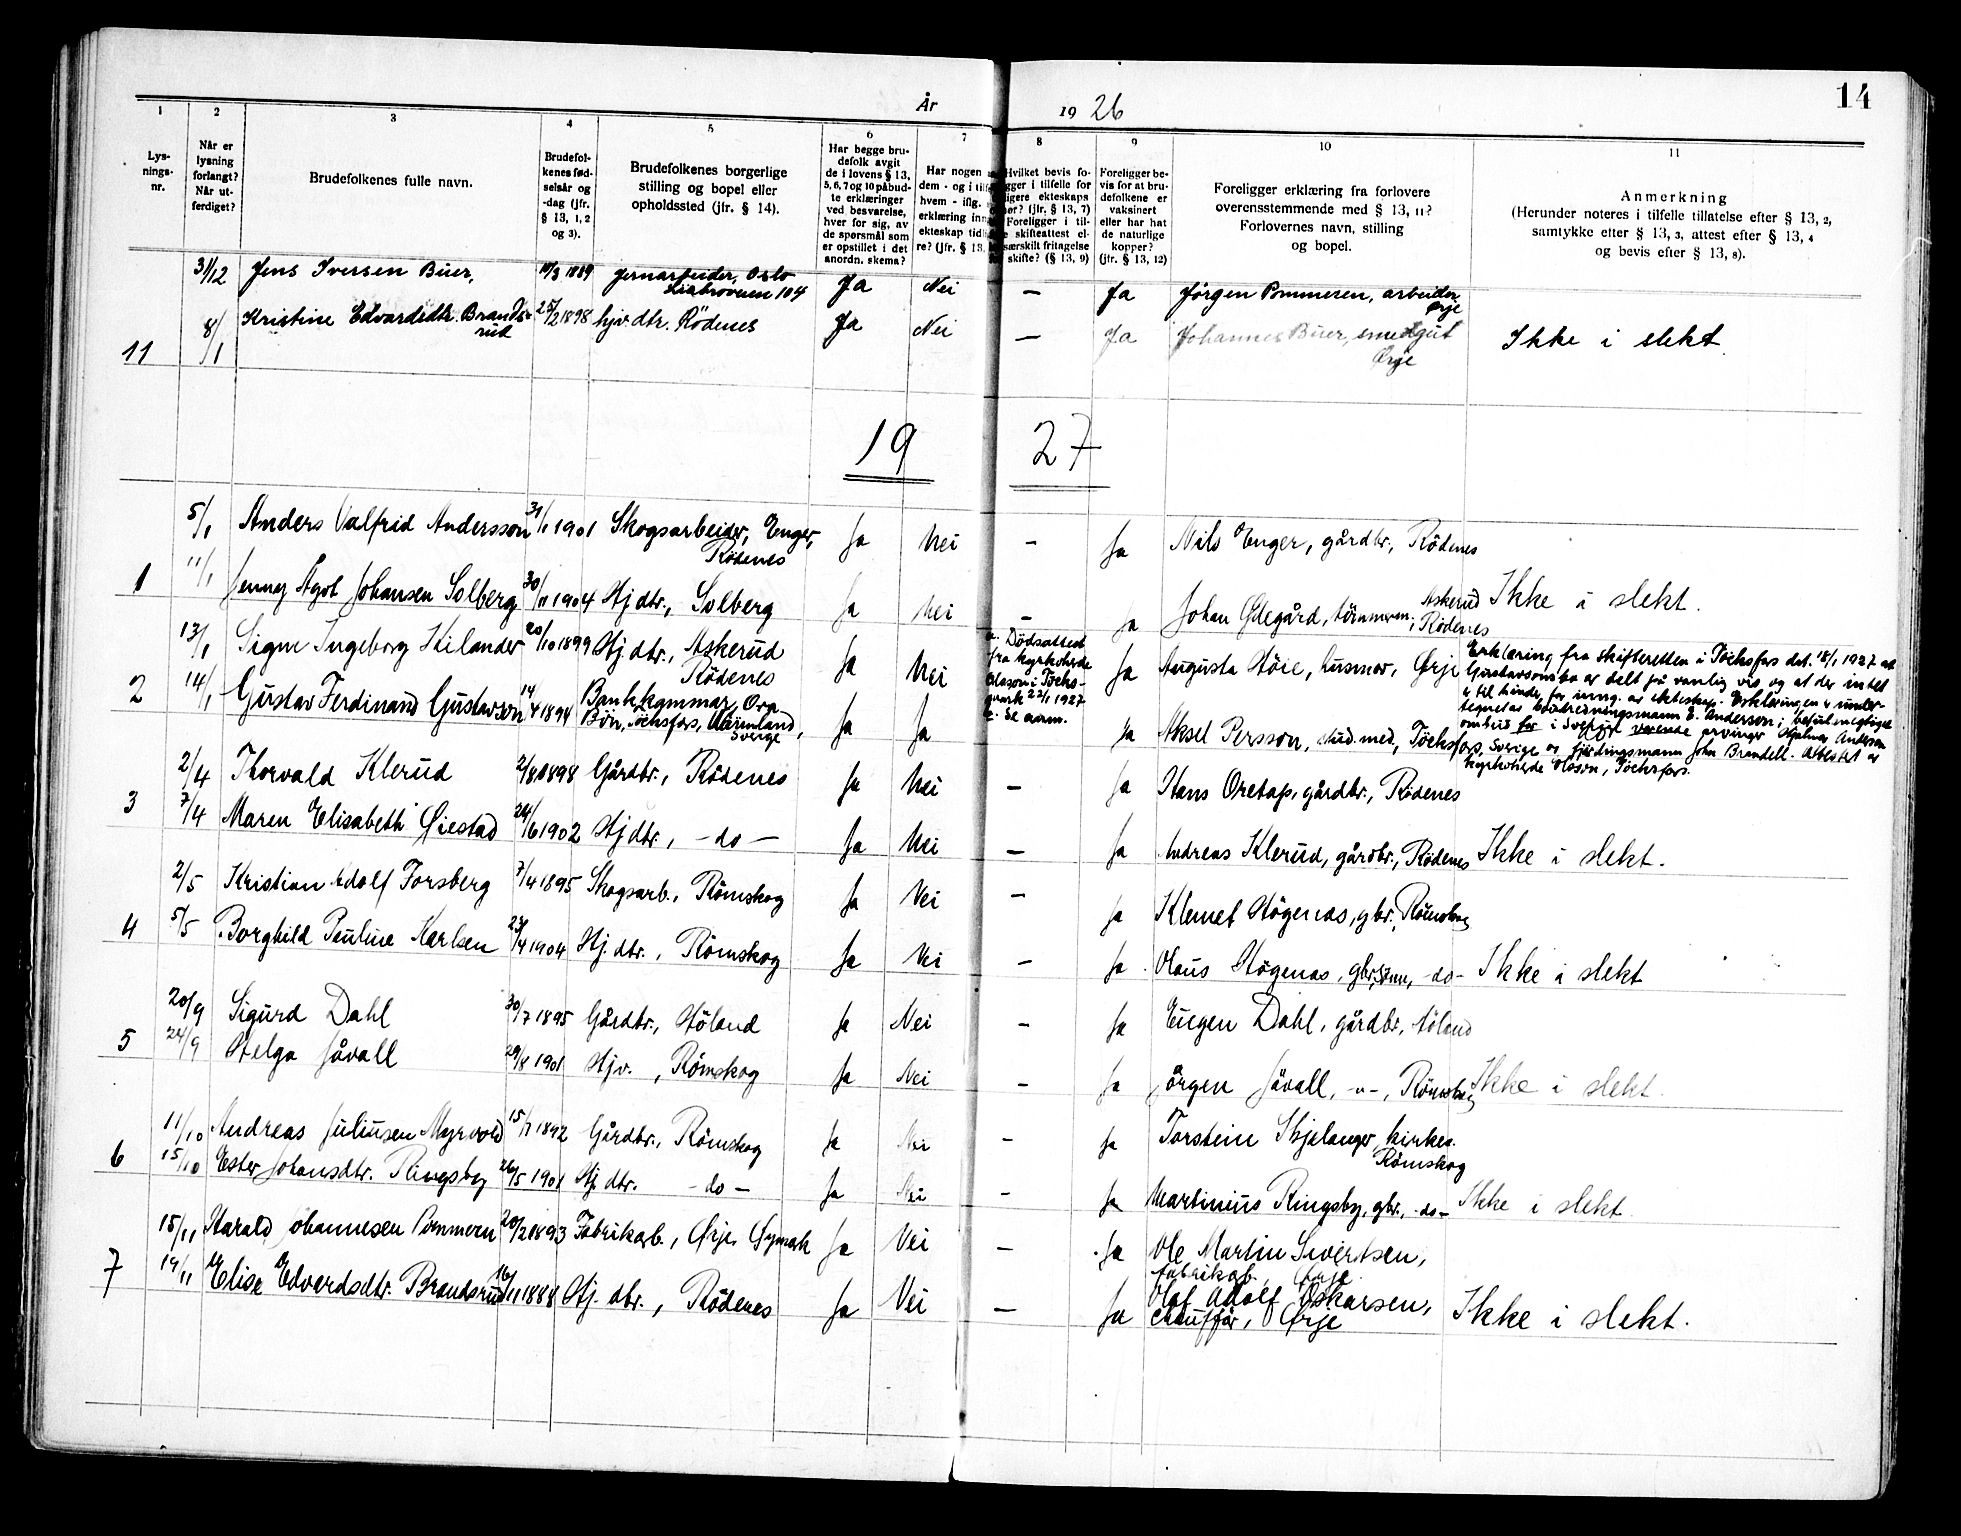 14
År 1926
1 2 3 4 5 6 7 8 9 10 11
Lys-
nings-
nr.
Når er
lysning
forlangt?
Når ut-
ferdiget?
Brudefolkenes fulle navn.
Brudefol-
kenes fød-
selsår og
-dag (jfr.
§ 13, 1, 2
og 3).
Brudefolkenes borgerlige
stilling og bopel eller
opholdssted (jfr. § 14).
Har begge bru-
defolk avgit
de i lovens § 13,
5, 6, 7 og 10 påbud-
te erklæringer
ved besvarelse,
hver for sig, av
de spørsmål som
er opstillet i det
anordn. skema?
Har nogen
dem - og i tilf
hvem - iflg.
erklæring inn
ekteskap tidl
re? (jfr. § 13,
Hvilket bevis fo-
gger i tilfelle for
ligere ekteskaps
her? (jfr. § 13, 7)
Foreligger i til-
e skifteattest el-
særskilt fritagelse
skifte? (§ 13, 9)
Foreligger be-
vis for at bru-
defolkene er
vaksinert
eller har hat
de naturlige
kopper?
(jfr. § 13, 12)
Foreligger erklæring fra forlovere
overensstemmende med § 13, 11?
Forlovernes navn, stilling
og bopel.
Anmerkning
(Herunder noteres i tilfelle tillatelse efter § 13, 2,
samtykke efter § 13, 3, attest efter § 13, 4
og bevis efter § 13, 8).
31/12 Jens Iversen Buer, 1889 Jernarbeider, Oslo
Liabroveien 104 Ja Nei — Ja Jörgen Pommeren, arbeider,
Ørje
11 8/1 Kristine Edvardsdtr. Brands-
rud 25/2 1898 hjv. dtr. Rödenes Ja Nei — Ja Johannes Buer, smedgut
Ørje Ikke i slekt.
19 27
5/1 Anders Valfrid Andersson 31/1 1901 Skogsarbeider, Enger,
Rödenes Ja Nei - Ja Nils Enger, gårdbr., Rödenes
1 11/1 Jenny Agot Johansen Solberg 30/11 1904 Hj dtr., Solberg Ja Nei - Ja Johan Ødegård, tömmerm., Askerud
Rödenes Ikke i slekt.
13/1 Signe Ingeborg Kilander 20/10 1899 Hj dtr., Askerud
Rödenes Ja Nei Ja Augusta Höie, husmor, Ørje
2 14/1 Gustav Ferdinand Gustavson 14/4 1894 Bankkommisær,
Bön, Töcksfors, Wärmland,
Sverige Ja Ja Ja Aksel Persson, stud. med., Töcksfors, Sverige
Dödsattest
fra kyrkoherde
Olsson i Töcks-
mark 22/1 1927
2. Se anm.
Erklæring fra skifteretten i Töcksfors dat. 18/1 1927 at
Gustavsons bo er delt på vanlig vis og at der intet
er til hinder for inng. av ekteskap. Erklæringen er under-
tegnet av boutredningsmann E. Anderson; befullmegtiget
ombud for i Sverige værende arvinger Hjalmar Anderson
og fjärdingsmann John Brandell. Attestet av
kyrkoherde Olsson, Töcksfors.
2/4 Thorvald Klerud 2/8 1898 Gårdbr., Rödenes Ja Nei — Ja Hans Oretop, gårdbr., Rödenes
3 7/4 Maren Elisabeth Øiestad 24/6 1902 Hj dtr., - do - Ja Nei — Ja Andreas Klerud, gårdbr., Rödenes Ikke i slekt.
2/5 Kristian Adolf Forsberg 7/4 1895 Skogsarb., Römskog Ja Nei — Ja Klemet Högenas, gbr., Römskog
4 5/5 Borghild Pauline Karlsen 23/4 1904 Hj. dtr., Römskog Ja Nei — Ja Olaus Högenas, gbr.sönn, -do- Ikke i slekt
20/9 Sigurd Dahl 30/7 1895 Gårdbr., Höland Ja Nei — Ja Eugen Dahl, gårdbr., Höland
5 24/9 Helga Jåvall 29/8 1901 Hjv., Römskog Ja Nei — Ja Jörgen Jåvall, -"-, Römskog Ikke i slekt.
11/10 Andreas Juliusen Myrvold 15/7 1892 Gårdbr., Römskog Ja Nei — Ja Torstein Skjelanger, kirkes.
Römskog
6 15/10 Ester Johansdtr. Ringsby 26/5 1901 Hj. dtr. - do - Ja Nei — Ja Martinius Ringsby, gbr., -do- Ikke i slekt.
15/11 Harald Johannesen Pommern 20/2 1893 Fabrikarb., Ørje, Øymark Ja Nei — Ja Ole Martin Sivertsen,
fabrikarb., Ørje.
7 19/11 Elise Edvardsdtr. Brandsrud 16/11 1888 Hj. dtr., Rödenes Ja Nei — Ja Olaf Adolf Oskarsen,
chaufför, Ørje Ikke i slekt.